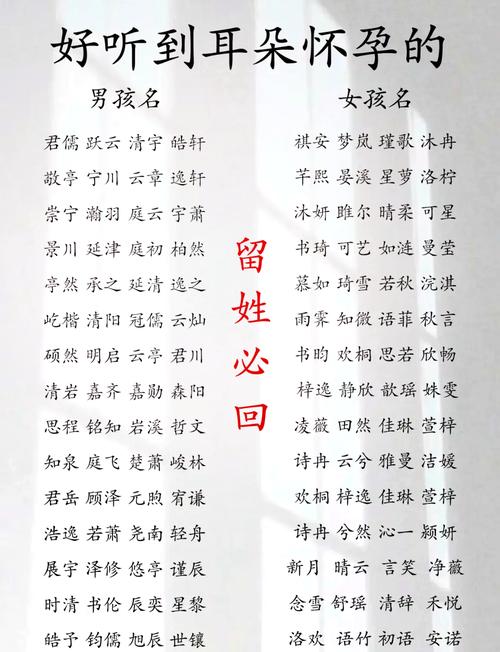 好听到耳朵怀孕的
男孩名
君儒 跃云 清宇 皓轩
敬亭 宁川 云章 逸轩
崇宁 瀚羽 庭云 宇萧
景川 延津 庭初 柏然
亭然 承之 延清 逸之
屹楷 清阳 冠儒 云灿
硕然 明启 云亭 君川
清岩 嘉齐 嘉勋 森阳
思程 铭知 岩溪 哲文
知泉 庭飞 楚萧 峻林
君岳 顾泽 元煦 宥谦
浩逸 若萧 尧南 轻舟
展宇 泽修 悠亭 谨辰
时清 书伦 辰奕 星黎
皓予 钧儒 旭辰 世镶
留
姓
必
回
女孩名
祺安 梦岚 瑾歌 沐冉
芊熙 晏溪 星萝 洛柠
沐妍 雎尔 晴柔 可星
书琦 可艺 如涟 曼莹
慕如 琦雪 若秋 浣淇
雨霁 知微 语菲 秋言
书昀 欢桐 思若 欣畅
梓逸 静欣 歆瑶 姝雯
凌薇 田然 佳琳 萱梓
诗冉 云兮 雅曼 洁媛
欢桐 梓逸 佳琳 萱梓
诗冉 兮然 沁一 颍妍
新月 晴云 言笑 净薇
念雪 舒瑶 清辞 禾悦
洛欢 语竹 初语 安诺